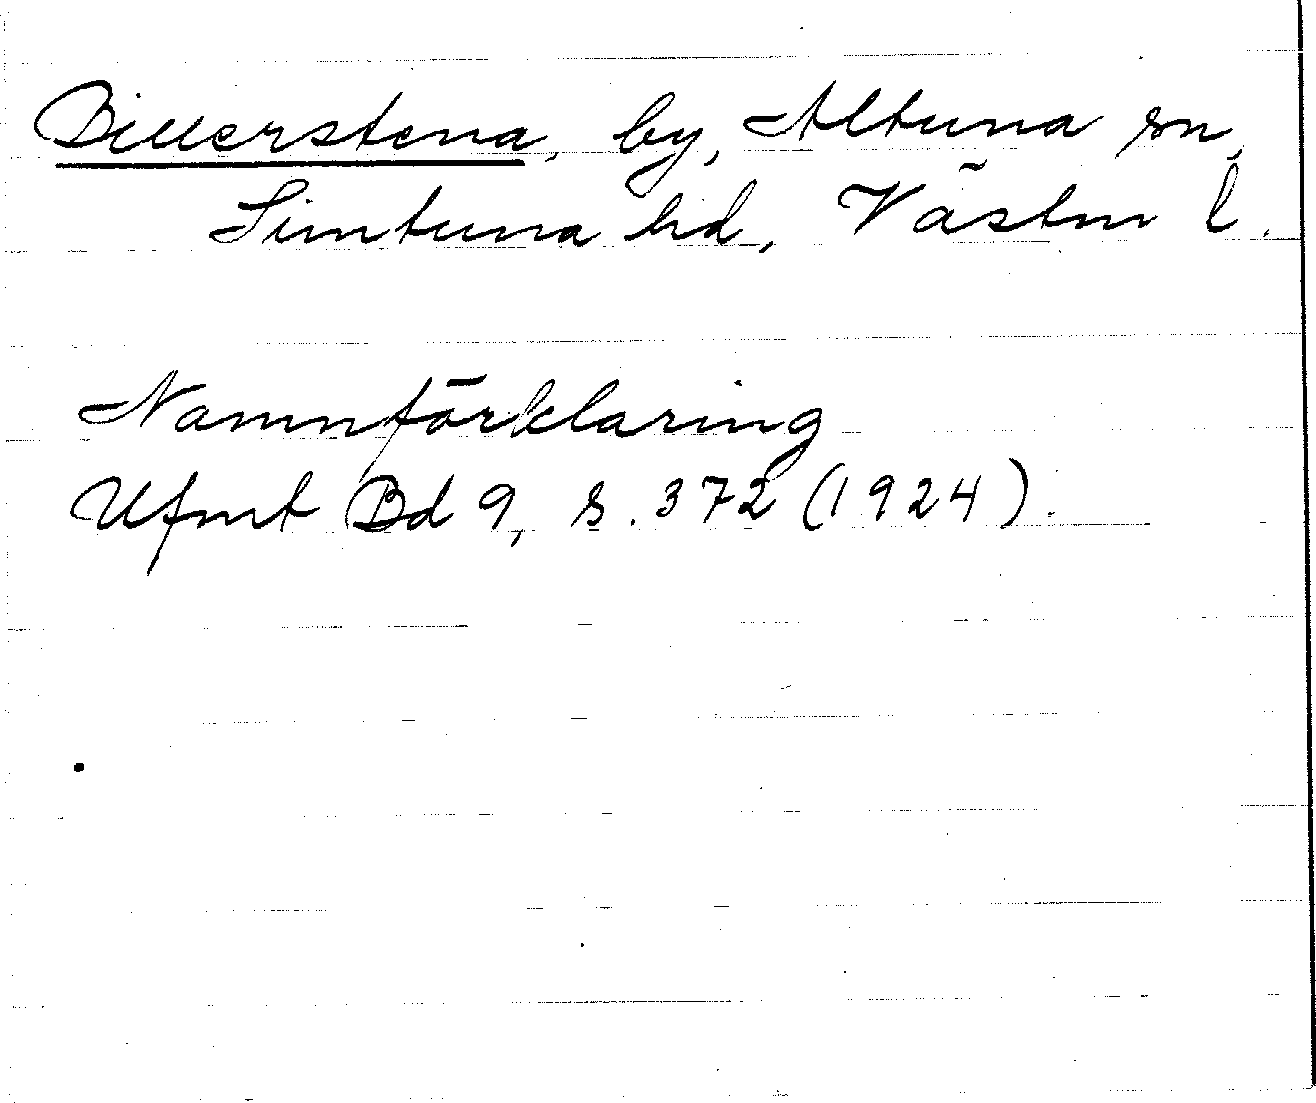 Billerstena, by, Altuna sn,
Simtuna hd, Västm l.
Namnförklaring
Ufmt Bd 9, s. 372 (1924).